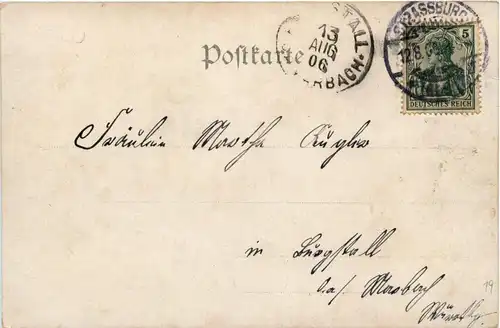 Postkarte
STALL
13
AUG
06
ERBACH
STRASSBURG
12.8.06
5
DEUTSCHES REICH
Fräulein Martha Kugler
in Burgstall
b/ Marbach
Württbg.
19